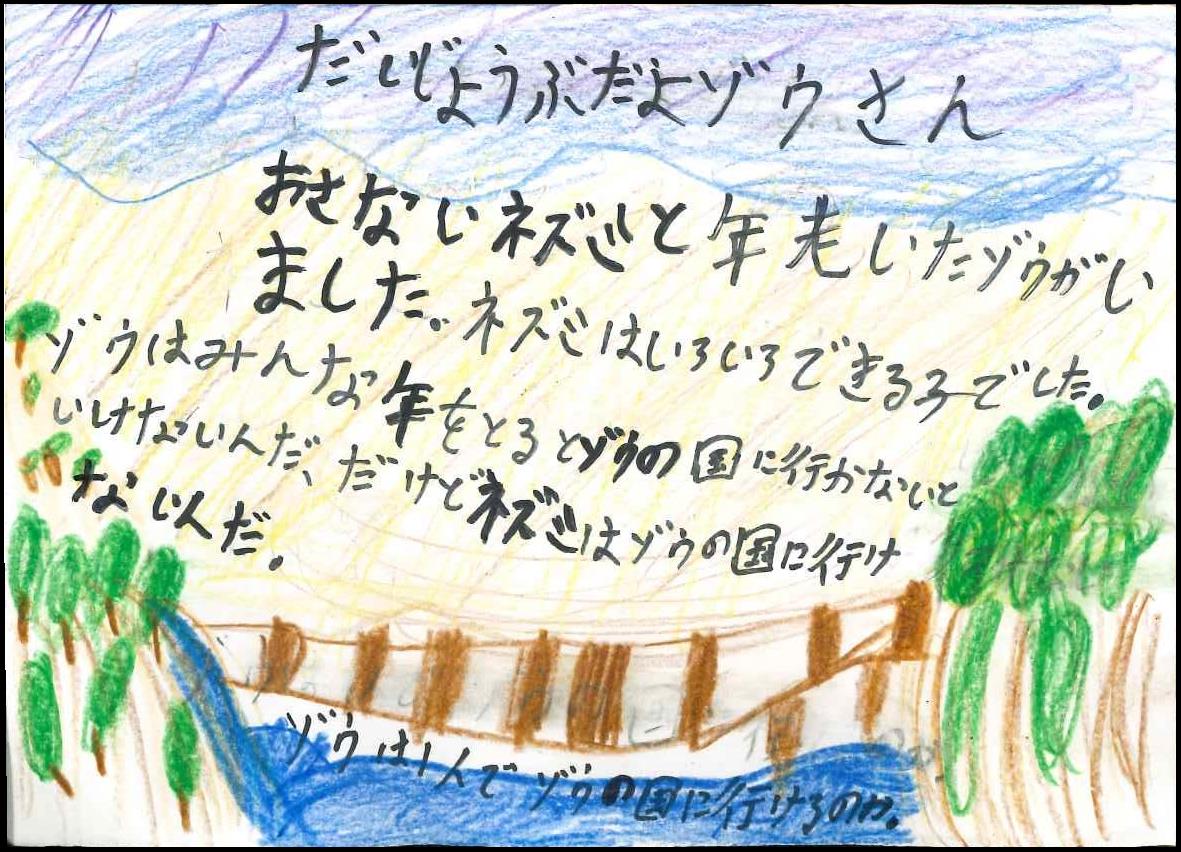 だいじょうぶだよゾウさん
おさないネズミと年老いたゾウがい
ました。ネズミはいろいろできる子でした。
ゾウはみんな年をとるとゾウの国に行かないと
いけないんだ、だけどネズミはゾウの国に行け
ないんだ。
ゾウは1人でゾウの国に行けるのか。